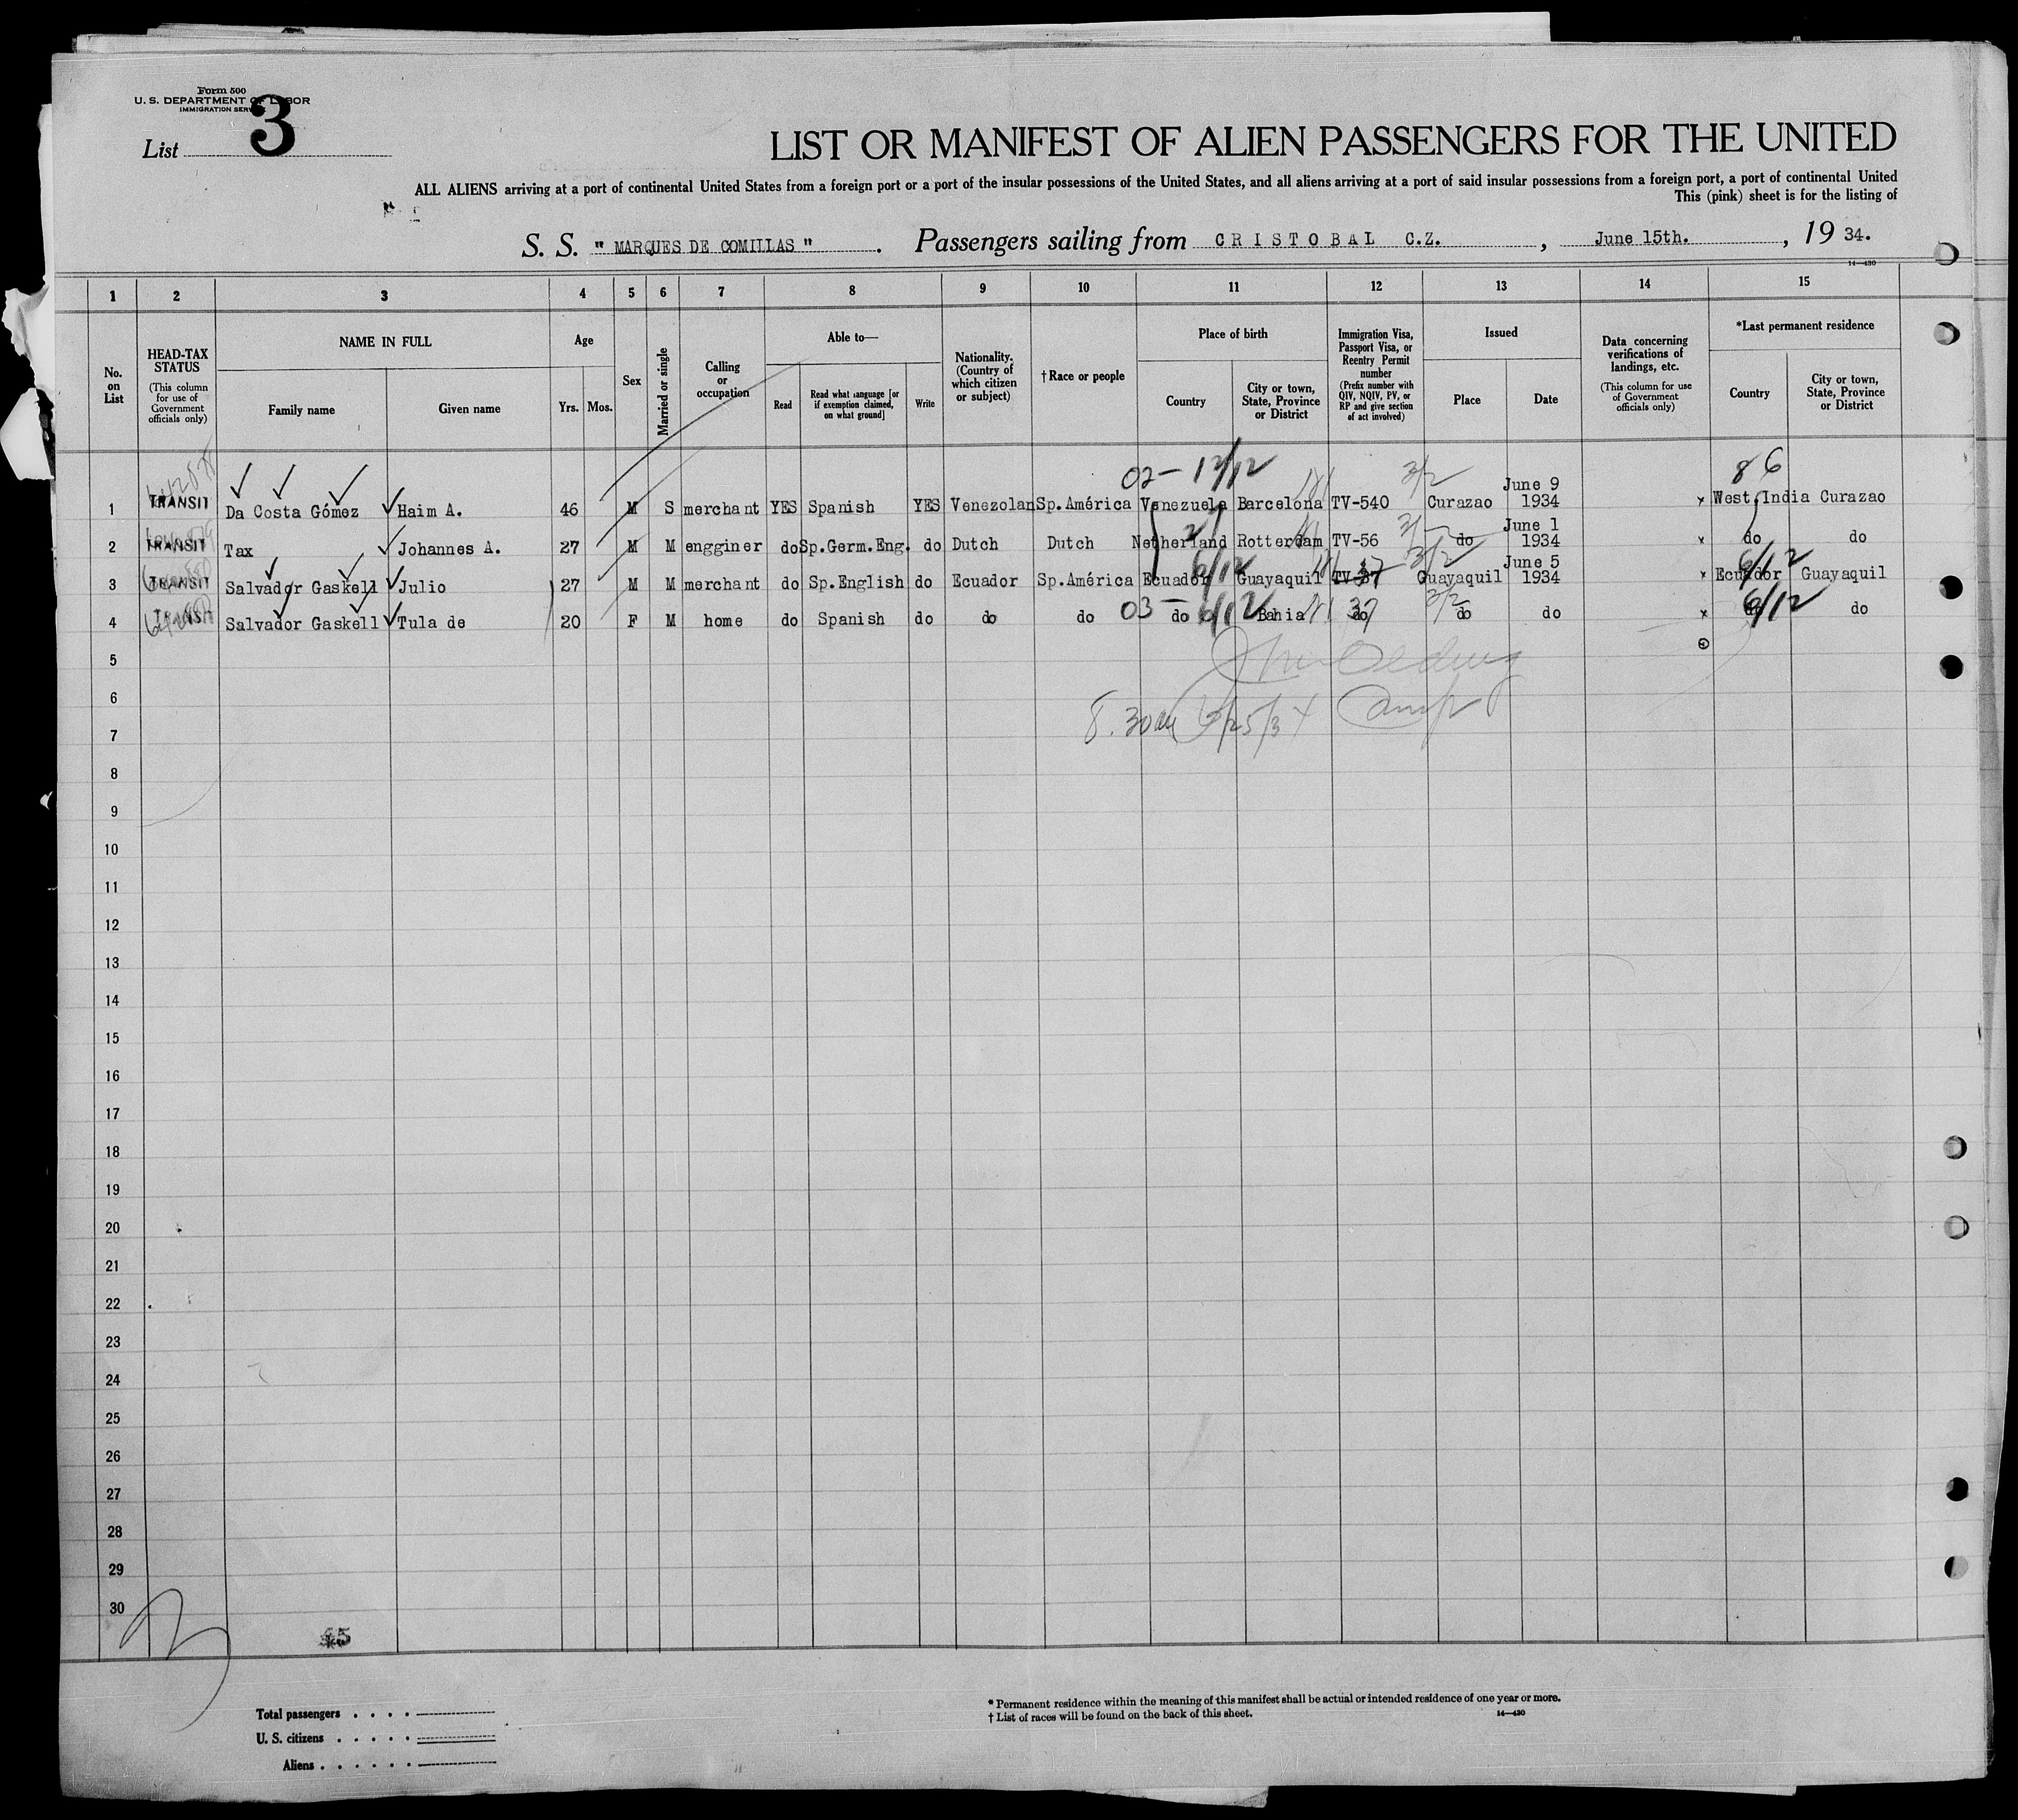 Form 500
U. S. DEPARTMENT OF LABOR
IMMIGRATION SERVICE
List 3
LIST OR MANIFEST OF ALIEN PASSENGERS FOR THE UNITED
ALL ALIENS arriving at a port of continental United States from a foreign port or a port of the insular possessions of the United States, and all aliens arriving at a port of said insular possessions from a foreign port, a port of continental United
This (pink) sheet is for the listing of
S. S. " MARQUES DE COMILLAS " . Passengers sailing from CRISTOBAL C.Z. , June 15th. , 19 34.
14—430
1 2 3 4 5 6 7 8 9 10 11 12 13 14 15
No. on List
HEAD-TAX STATUS (This column for use of Government officials only)
NAME IN FULL
Family name
Given name
Age
Yrs. Mos.
Sex
Married or single
Calling or occupation
Able to—
Read
Read what language [or if exemption claimed, on what ground]
Write
Nationality. (Country of which citizen or subject)
†Race or people
Place of birth
Country
City or town, State, Province or District
Immigration Visa, Passport Visa, or Reentry Permit number (Prefix number with QIV, NQIV, PV, or RP and give section of act involved)
Issued
Place
Date
Data concerning verifications of landings, etc. (This column for use of Government officials only)
*Last permanent residence
Country
City or town, State, Province or District
02- 12/12 3/2 86
1 TRANSIT Da Costa Gómez Haim A. 46 M S merchant YES Spanish YES Venezolan Sp.América Venezuela Barcelona TV-540 Curazao June 9 1934 x West India Curazao
2 TRANSIT Tax Johannes A. 27 M M engginer do Sp.Germ.Eng. do Dutch Dutch Netherland Rotterdam TV-56 do June 1 1934 x do do
6/12 3/2 6/12
3 TRANSIT Salvador Gaskell Julio 27 M M merchant do Sp.English do Ecuador Sp.América Ecuador Guayaquil TV-37 Guayaquil June 5 1934 x Ecuador Guayaquil
03- 6/12 37 3/2 6/12
4 TRANSIT Salvador Gaskell Tula de 20 F M home do Spanish do do do do Bahia do do do x do do
5
6
8.30am 6/25/34
7
8
9
10
11
12
13
14
15
16
17
18
19
20
21
22
23
24
25
26
27
28
29
30
Total passengers
U. S. citizens
Aliens
* Permanent residence within the meaning of this manifest shall be actual or intended residence of one year or more.
† List of races will be found on the back of this sheet.
14—430